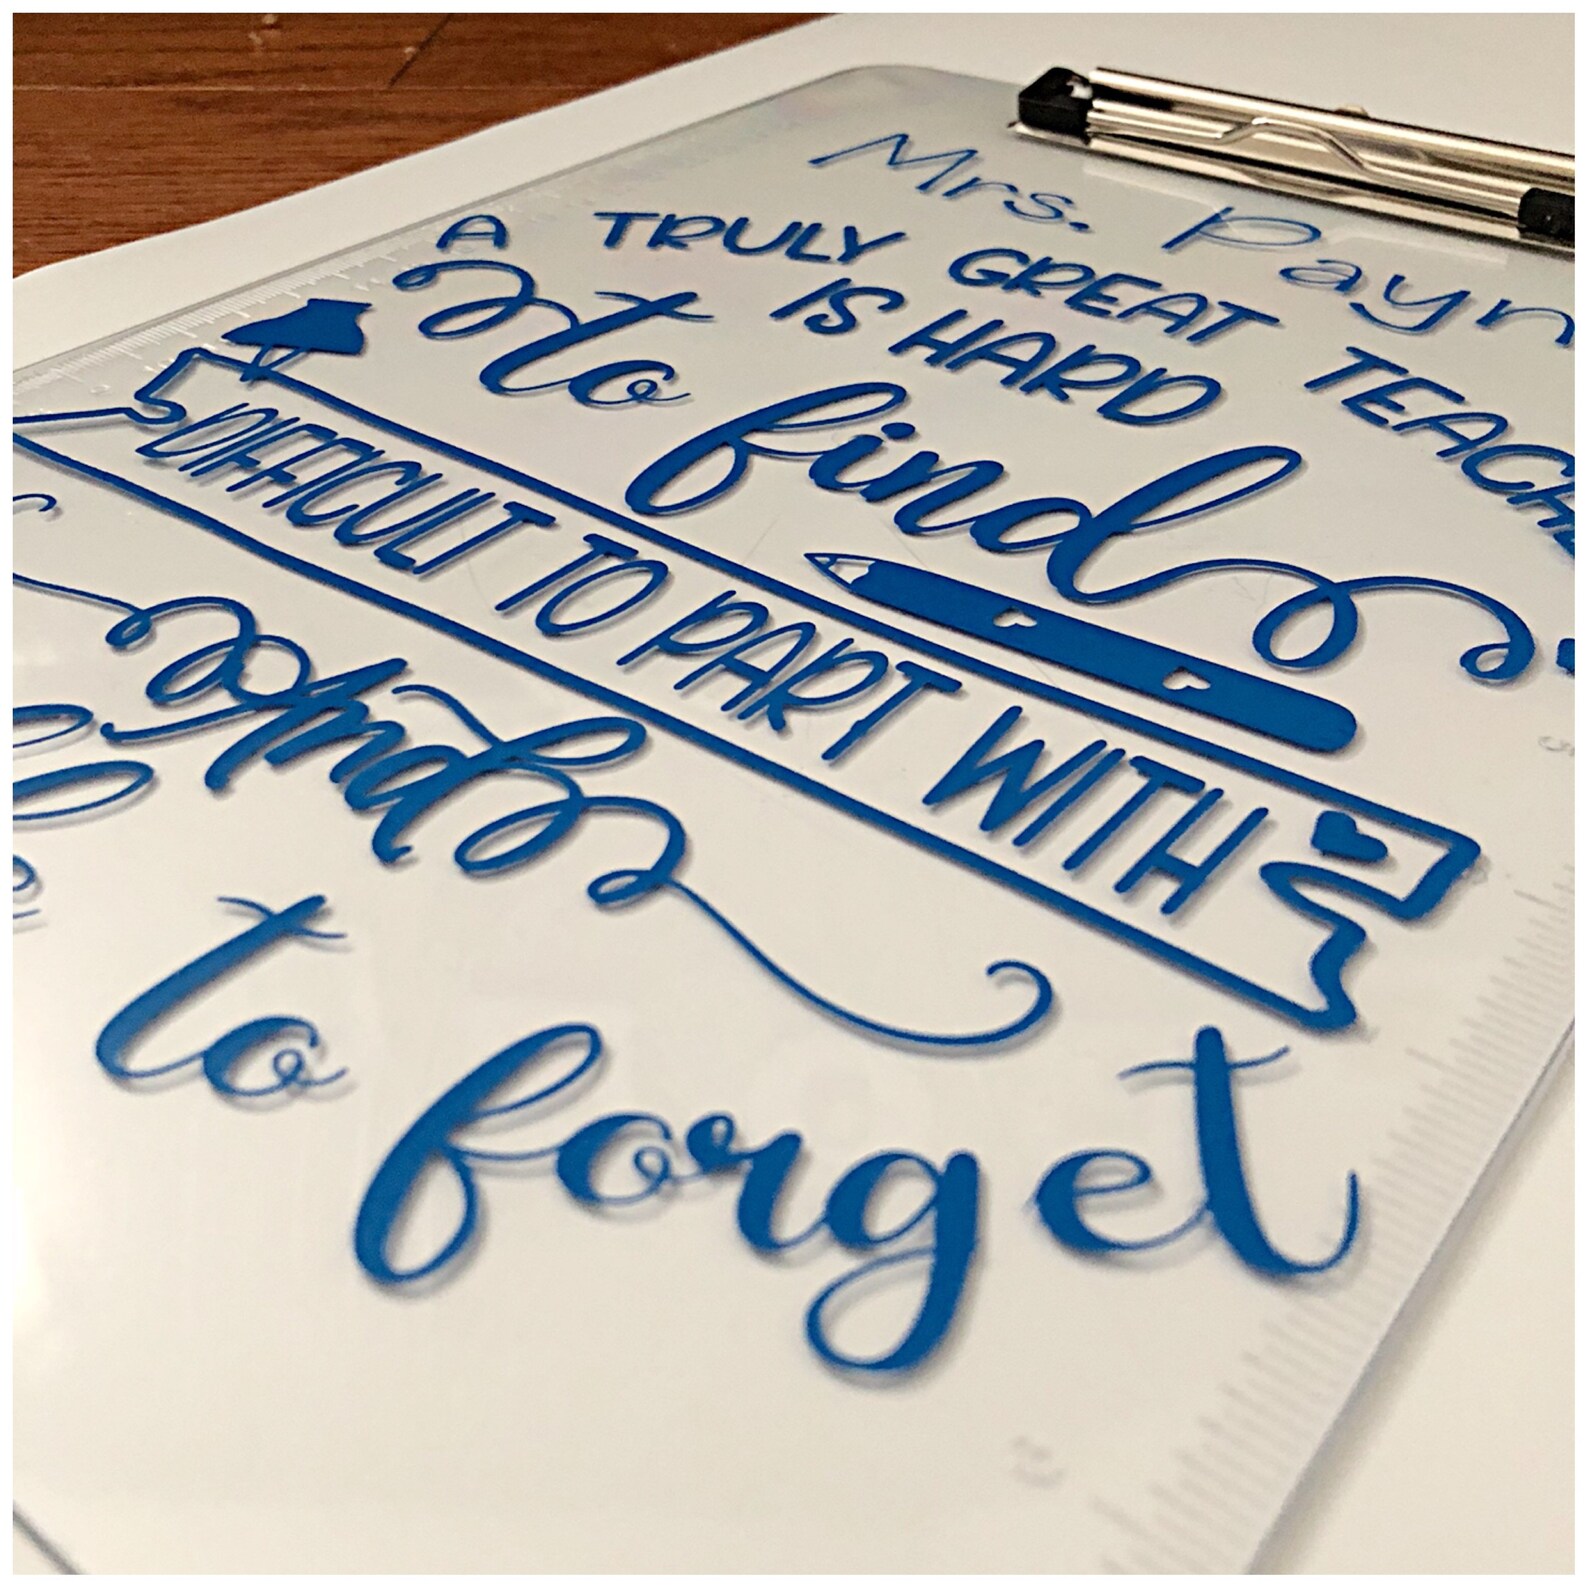 Mrs. Payn
A TRULY GREAT TEACHE
IS HARD
to find
DIFFICULT TO PART WITH
And
to forget